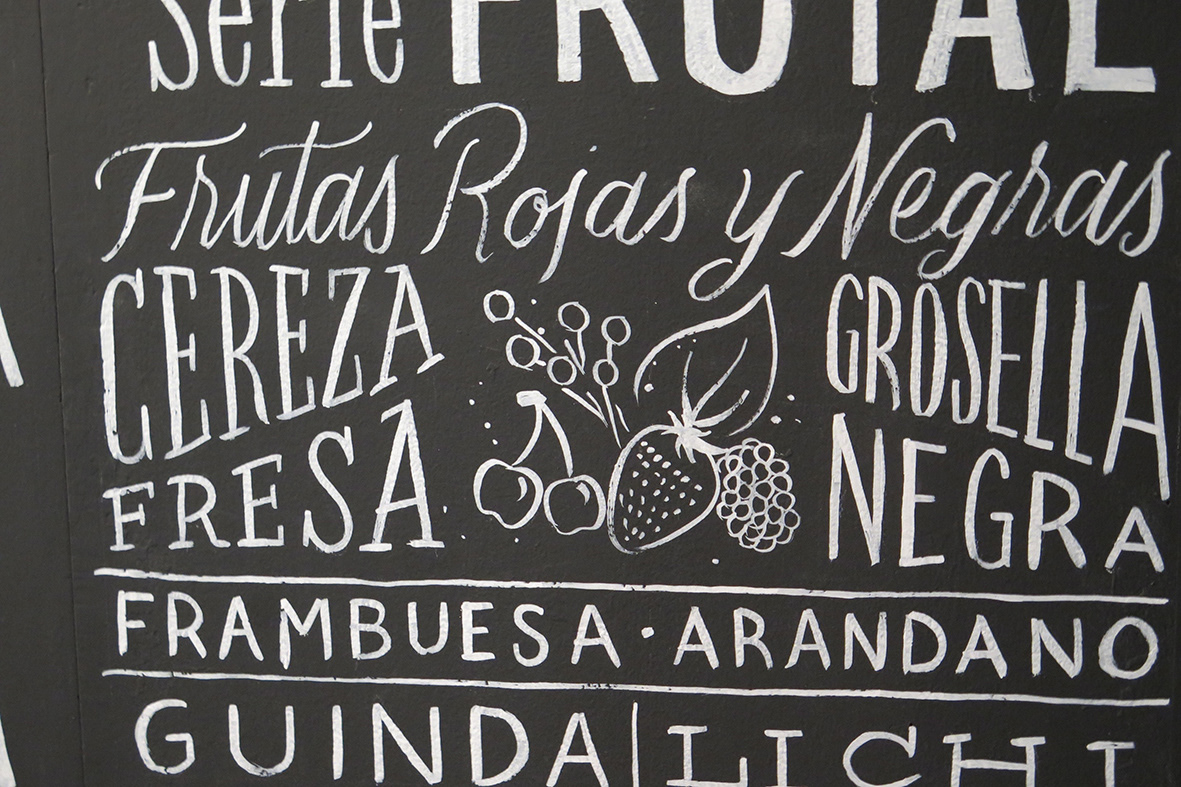 Serie FRUTAL
Frutas Rojas y Negras
CEREZA
FRESA
GROSELLA
NEGRA
FRAMBUESA · ARANDANO
GUINDA | LICHI